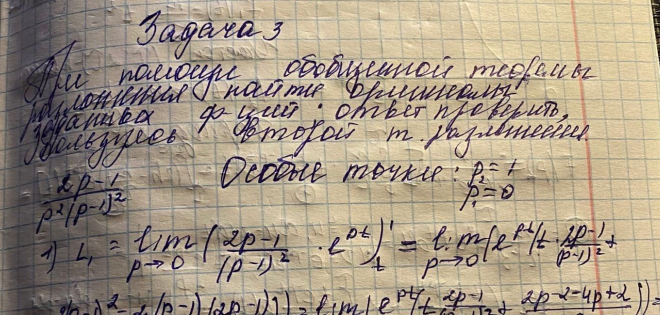 Задача 3
При помощи обобщенной теоремы
разложения найти оригиналы
заданных ф-ций. ответ проверить,
пользуясь второй т. разложения
(2p-1)/(p²(p-1)²) Особые точки: p₂=1
p₁=0
1) L₁ = lim p→0 ((2p-1)/(p-1)² · e^(pt))'_t = lim p→0 (e^(pt)(t · (2p-1)/(p-1)² +